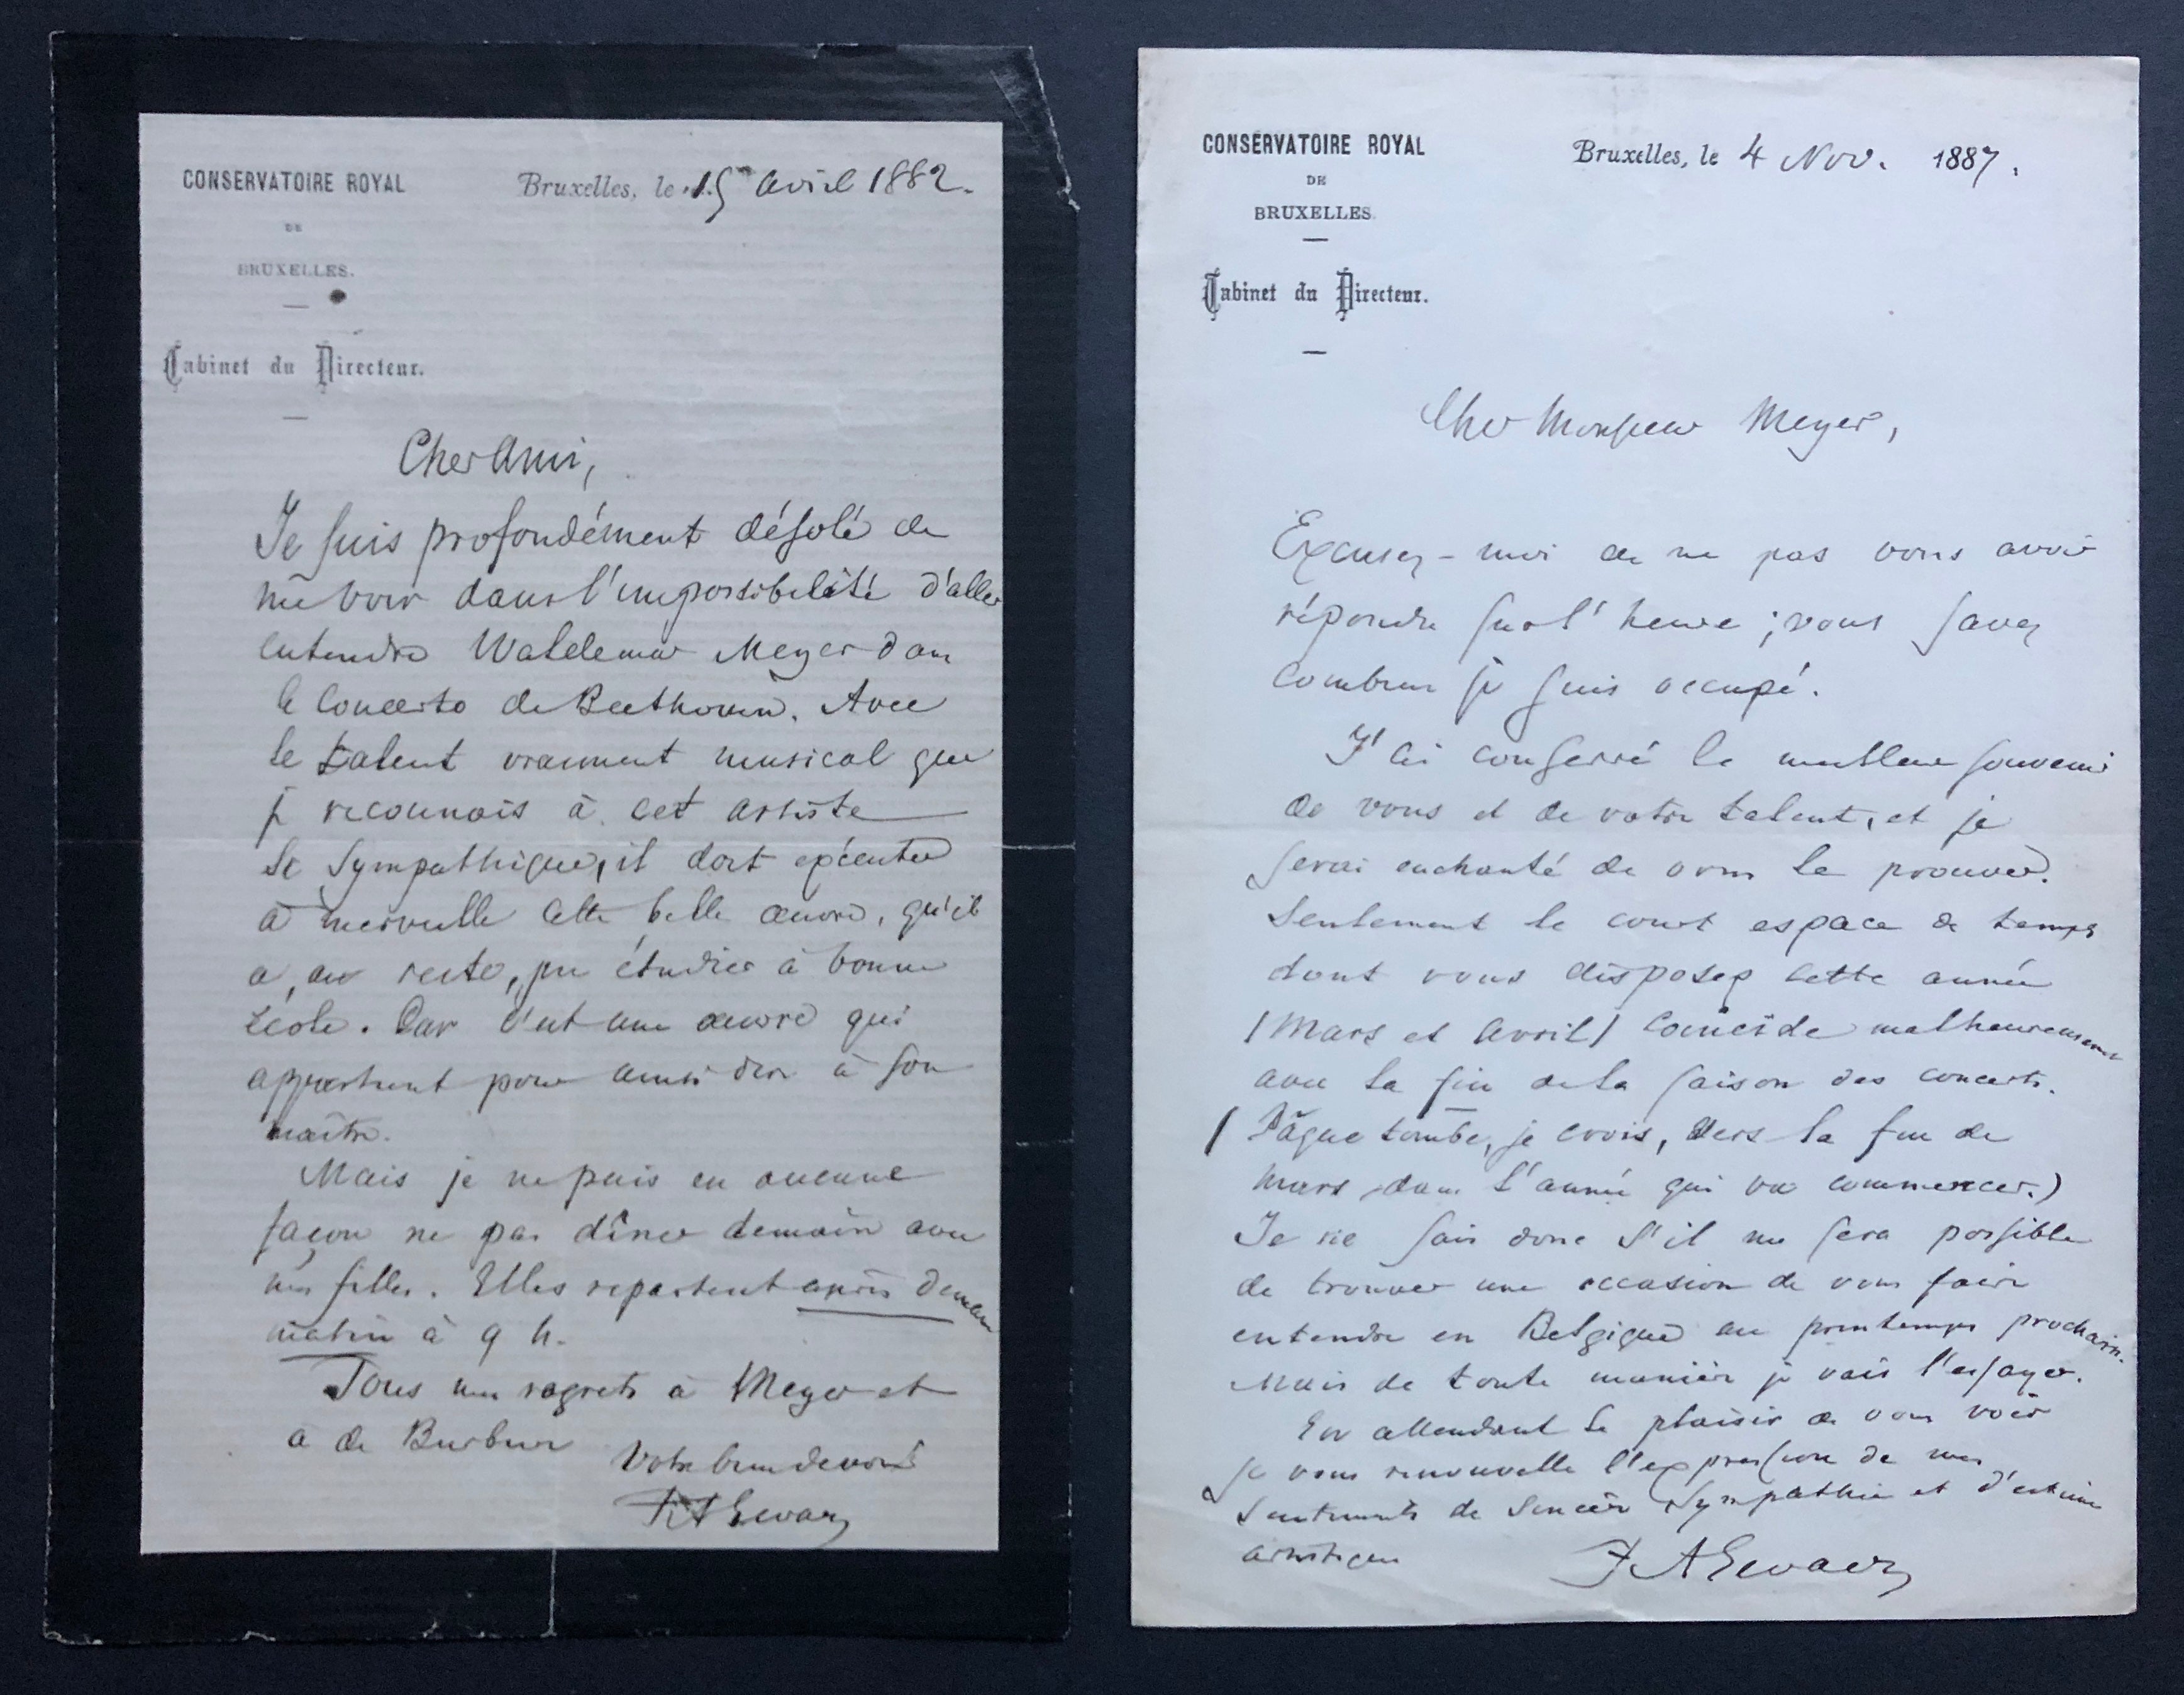 CONSERVATOIRE ROYAL
DE
BRUXELLES.
Cabinet du Directeur.
Bruxelles, le 15 Avril 1882.
Cher Ami,
Je suis profondément désolé de
me voir dans l'impossibilité d'aller
entendre Waldemar Meyer dans
le Concerto de Beethoven. Avec
le talent vraiment musical que
je reconnais à cet artiste
si sympathique, il doit exécuter
à merveille cette belle œuvre, qu'il
a, au reste, pu étudier à bonne
école. Car c'est une œuvre qui
appartient pour ainsi dire à son
maître.
Mais je ne puis en aucune
façon ne pas dîner demain avec
mes filles. Elles repartent après demain
matin à 9 h.
Tous mes regrets à Meyer et
à de Burbure
Votre bien dévoué
F A Gevaert
CONSERVATOIRE ROYAL
DE
BRUXELLES.
Cabinet du Directeur.
Bruxelles, le 4 Nov. 1887.
Cher Monsieur Meyer,
Excusez-moi de ne pas vous avoir
répondu sur l'heure ; vous savez
combien je suis occupé.
J'ai conservé le meilleur souvenir
de vous et de votre talent, et je
serai enchanté de vous le prouver.
Seulement le court espace de temps
dont vous disposez cette année
(Mars et Avril) coïncide malheureusement
avec la fin de la saison des concerts.
(Pâque tombe, je crois, vers la fin de
Mars dans l'année qui va commencer.)
Je ne sais donc s'il me sera possible
de trouver une occasion de vous faire
entendre en Belgique au printemps prochain.
Mais de toute manière je vais l'essayer.
En attendant le plaisir de vous voir
je vous renouvelle l'expression de mes
sentiments de sincère sympathie et d'estime
artistique
F A Gevaert